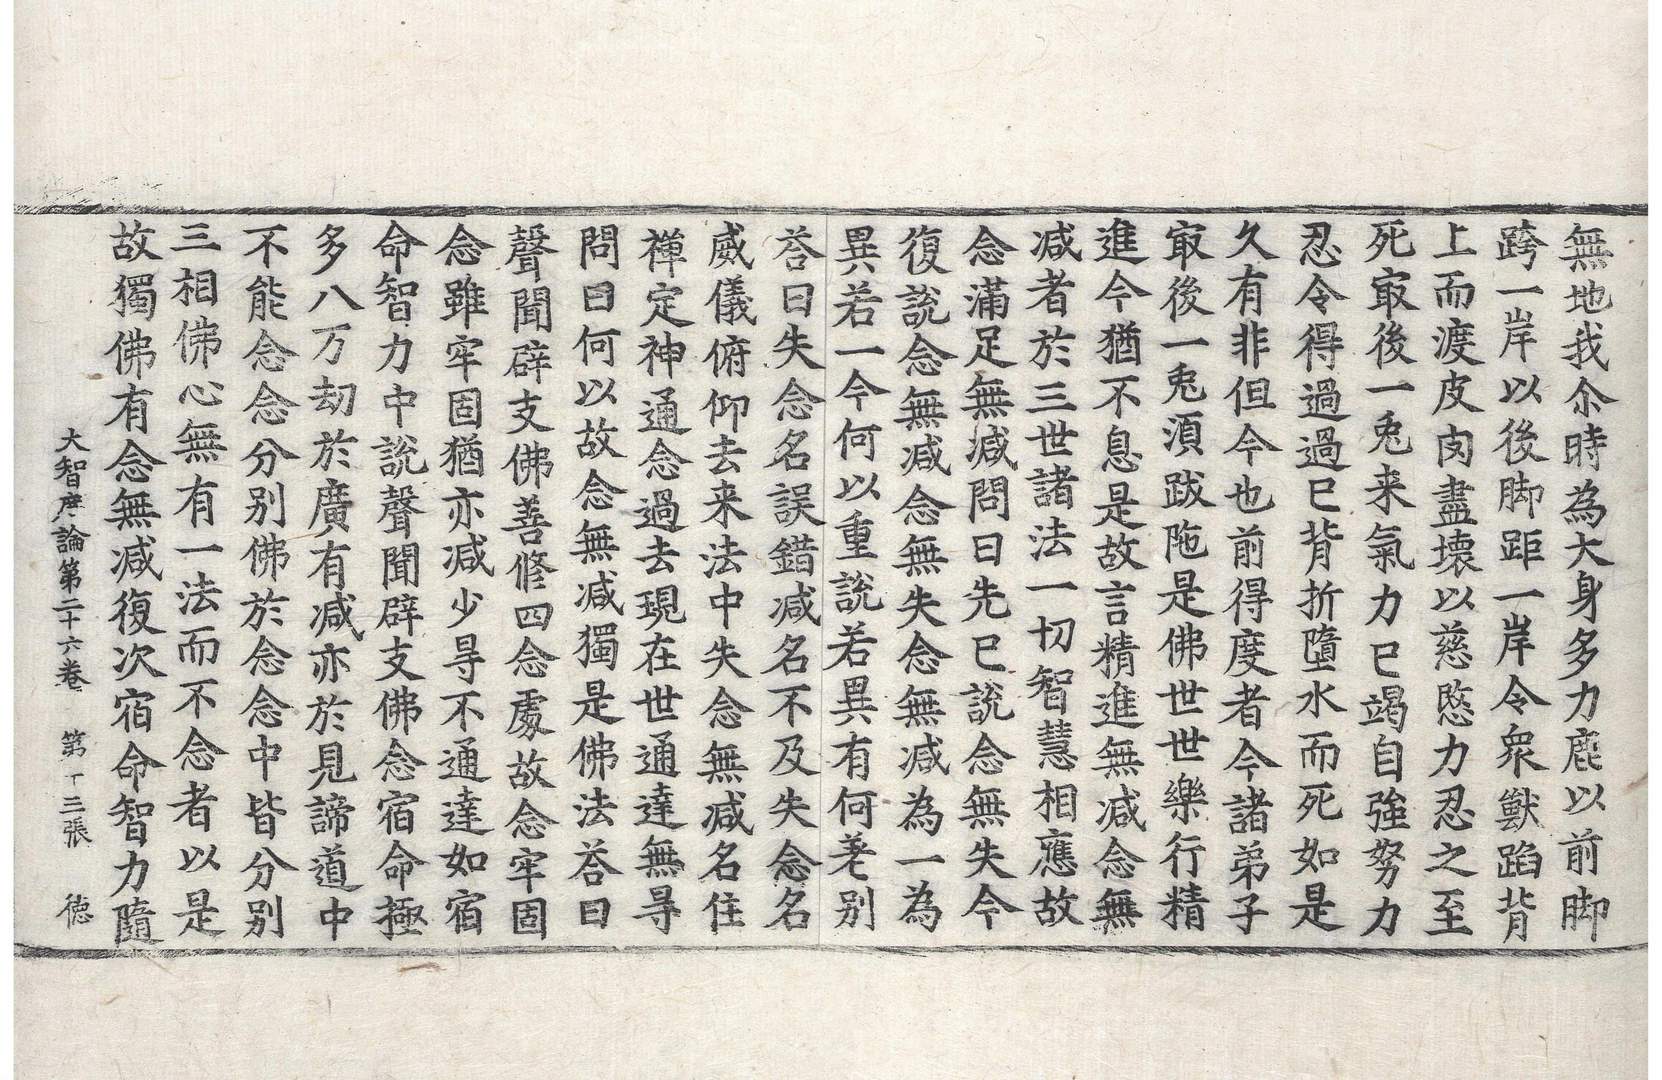 無地我尒時為大身多力鹿以前脚
跨一岸以後脚距一岸令衆獸蹈背
上而渡皮肉盡壞以慈愍力忍之至
死㝡後一兎来氣力已竭自強努力
忍令得過過已背折墮水而死如是
久有非但今也前得度者今諸弟子
㝡後一兎湏跋陁是佛世世樂行精
進今猶不息是故言精進無减念無
减者於三世諸法一切智慧相應故
念滿足無减問曰先已說念無失今
復說念無减念無失念無减為一為
異若一今何以重說若異有何差别
荅曰失念名誤錯减名不及失念名
威儀俯仰去来法中失念無减名住
禪定神通念過去現在世通達無㝵
問曰何以故念無减獨是佛法荅曰
聲聞辟支佛善修四念處故念牢固
念雖牢固猶亦减少㝵不通達如宿
命智力中說聲聞辟支佛念宿命極
多八万劫於廣有减亦於見諦道中
不能念念分别佛於念念中皆分别
三相佛心無有一法而不念者以是
故獨佛有念無减復次宿命智力隨
大智度論第二十六卷 第十三張 德